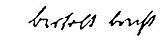 bertolt brecht